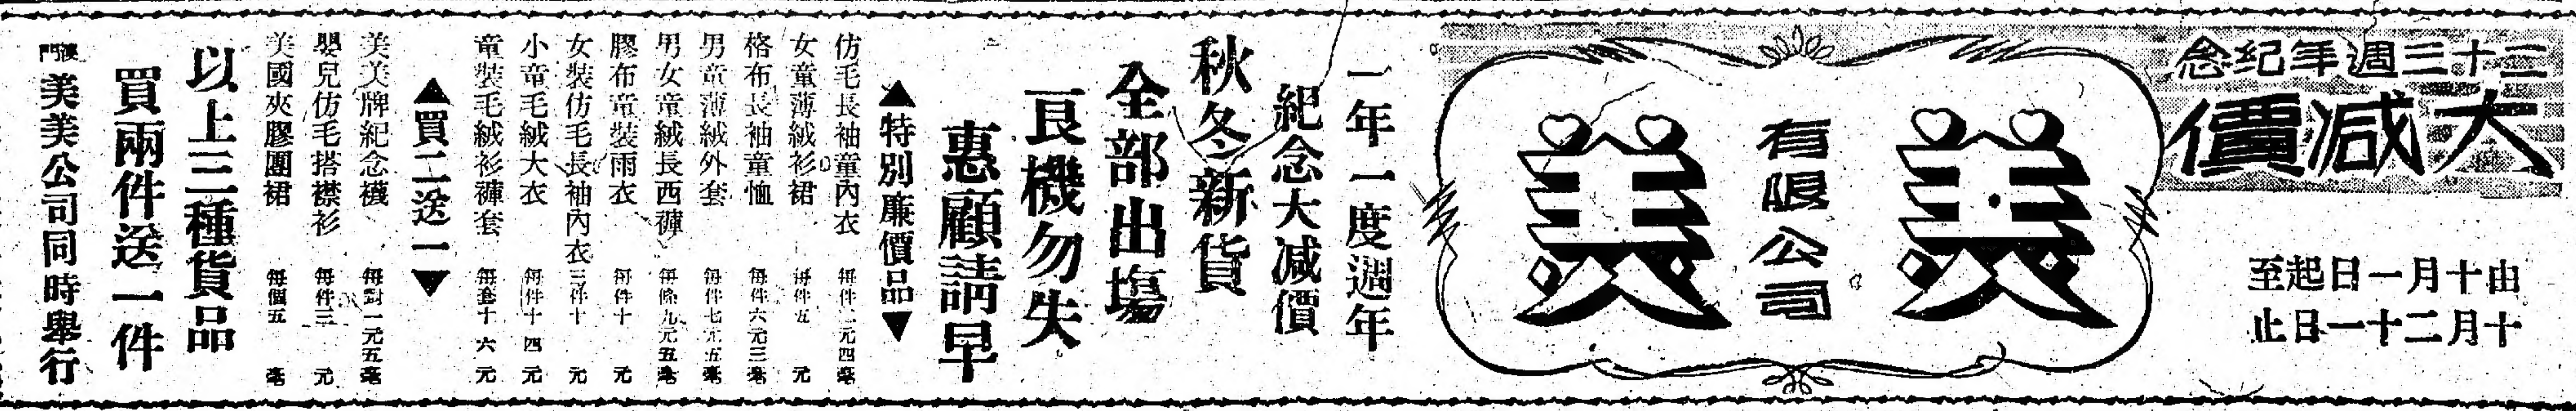 三十三週年紀念
大減價
由十月一日起至
十月二十一日止
美美
有限公司
一年一度週年
紀念大減價
秋冬新貨
全部出塲
良機勿失
惠顧請早
▲特別廉價品▼
仿毛長袖童內衣 每件二元四毫
女童薄絨衫裙 每件五元
格布長袖童恤 每件六元三毫
男童薄絨外套 每件七元五毫
男女童絨長西褲 每條九元五毫
膠布童裝雨衣 每件十元
女裝仿毛長袖內衣 三件十元
小童毛絨大衣 每件十四元
童裝毛絨衫褲套 每套十六元
▲買二送一▼
美美牌紀念襪 每對一元五毫
嬰兒仿毛搭襟衫 每件三元
美國夾膠團裙 每個五毫
以上三種貨品
買兩件送一件
澳門美美公司同時舉行